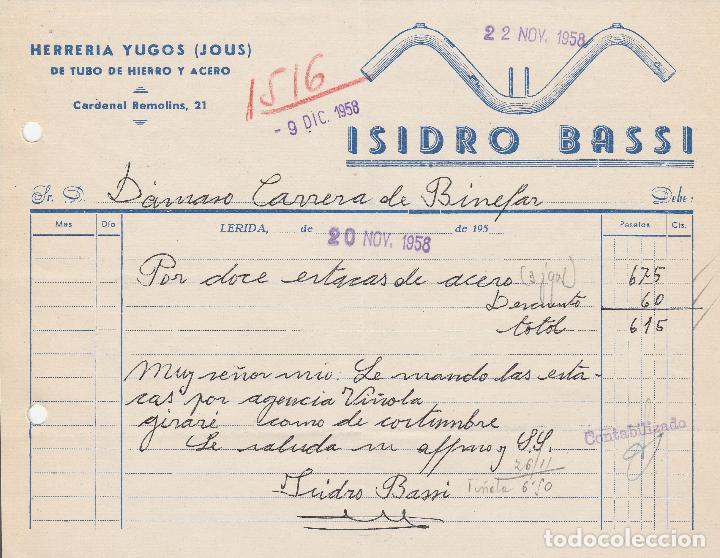 HERRERIA YUGOS (JOUS)
DE TUBO DE HIERRO Y ACERO
Cardenal Remolins, 21
1516
- 9 DIC. 1958
22 NOV. 1958
ISIDRO BASSI
Sr. D. Dámaso Carrera de Binefar Debe:
Mes Día LERIDA, de de 195 Pesetas Cts.
20 NOV. 1958
Por doce estacas de acero 675
Descuento 60
total 615
Muy señor mio: Le mando las esta-
cas por agencia Viñola
giraré como de costumbre
Contabilizado
Le saluda su affmo y S.S.
26/11
Isidro Bassi
6'50
todocoleccion.net